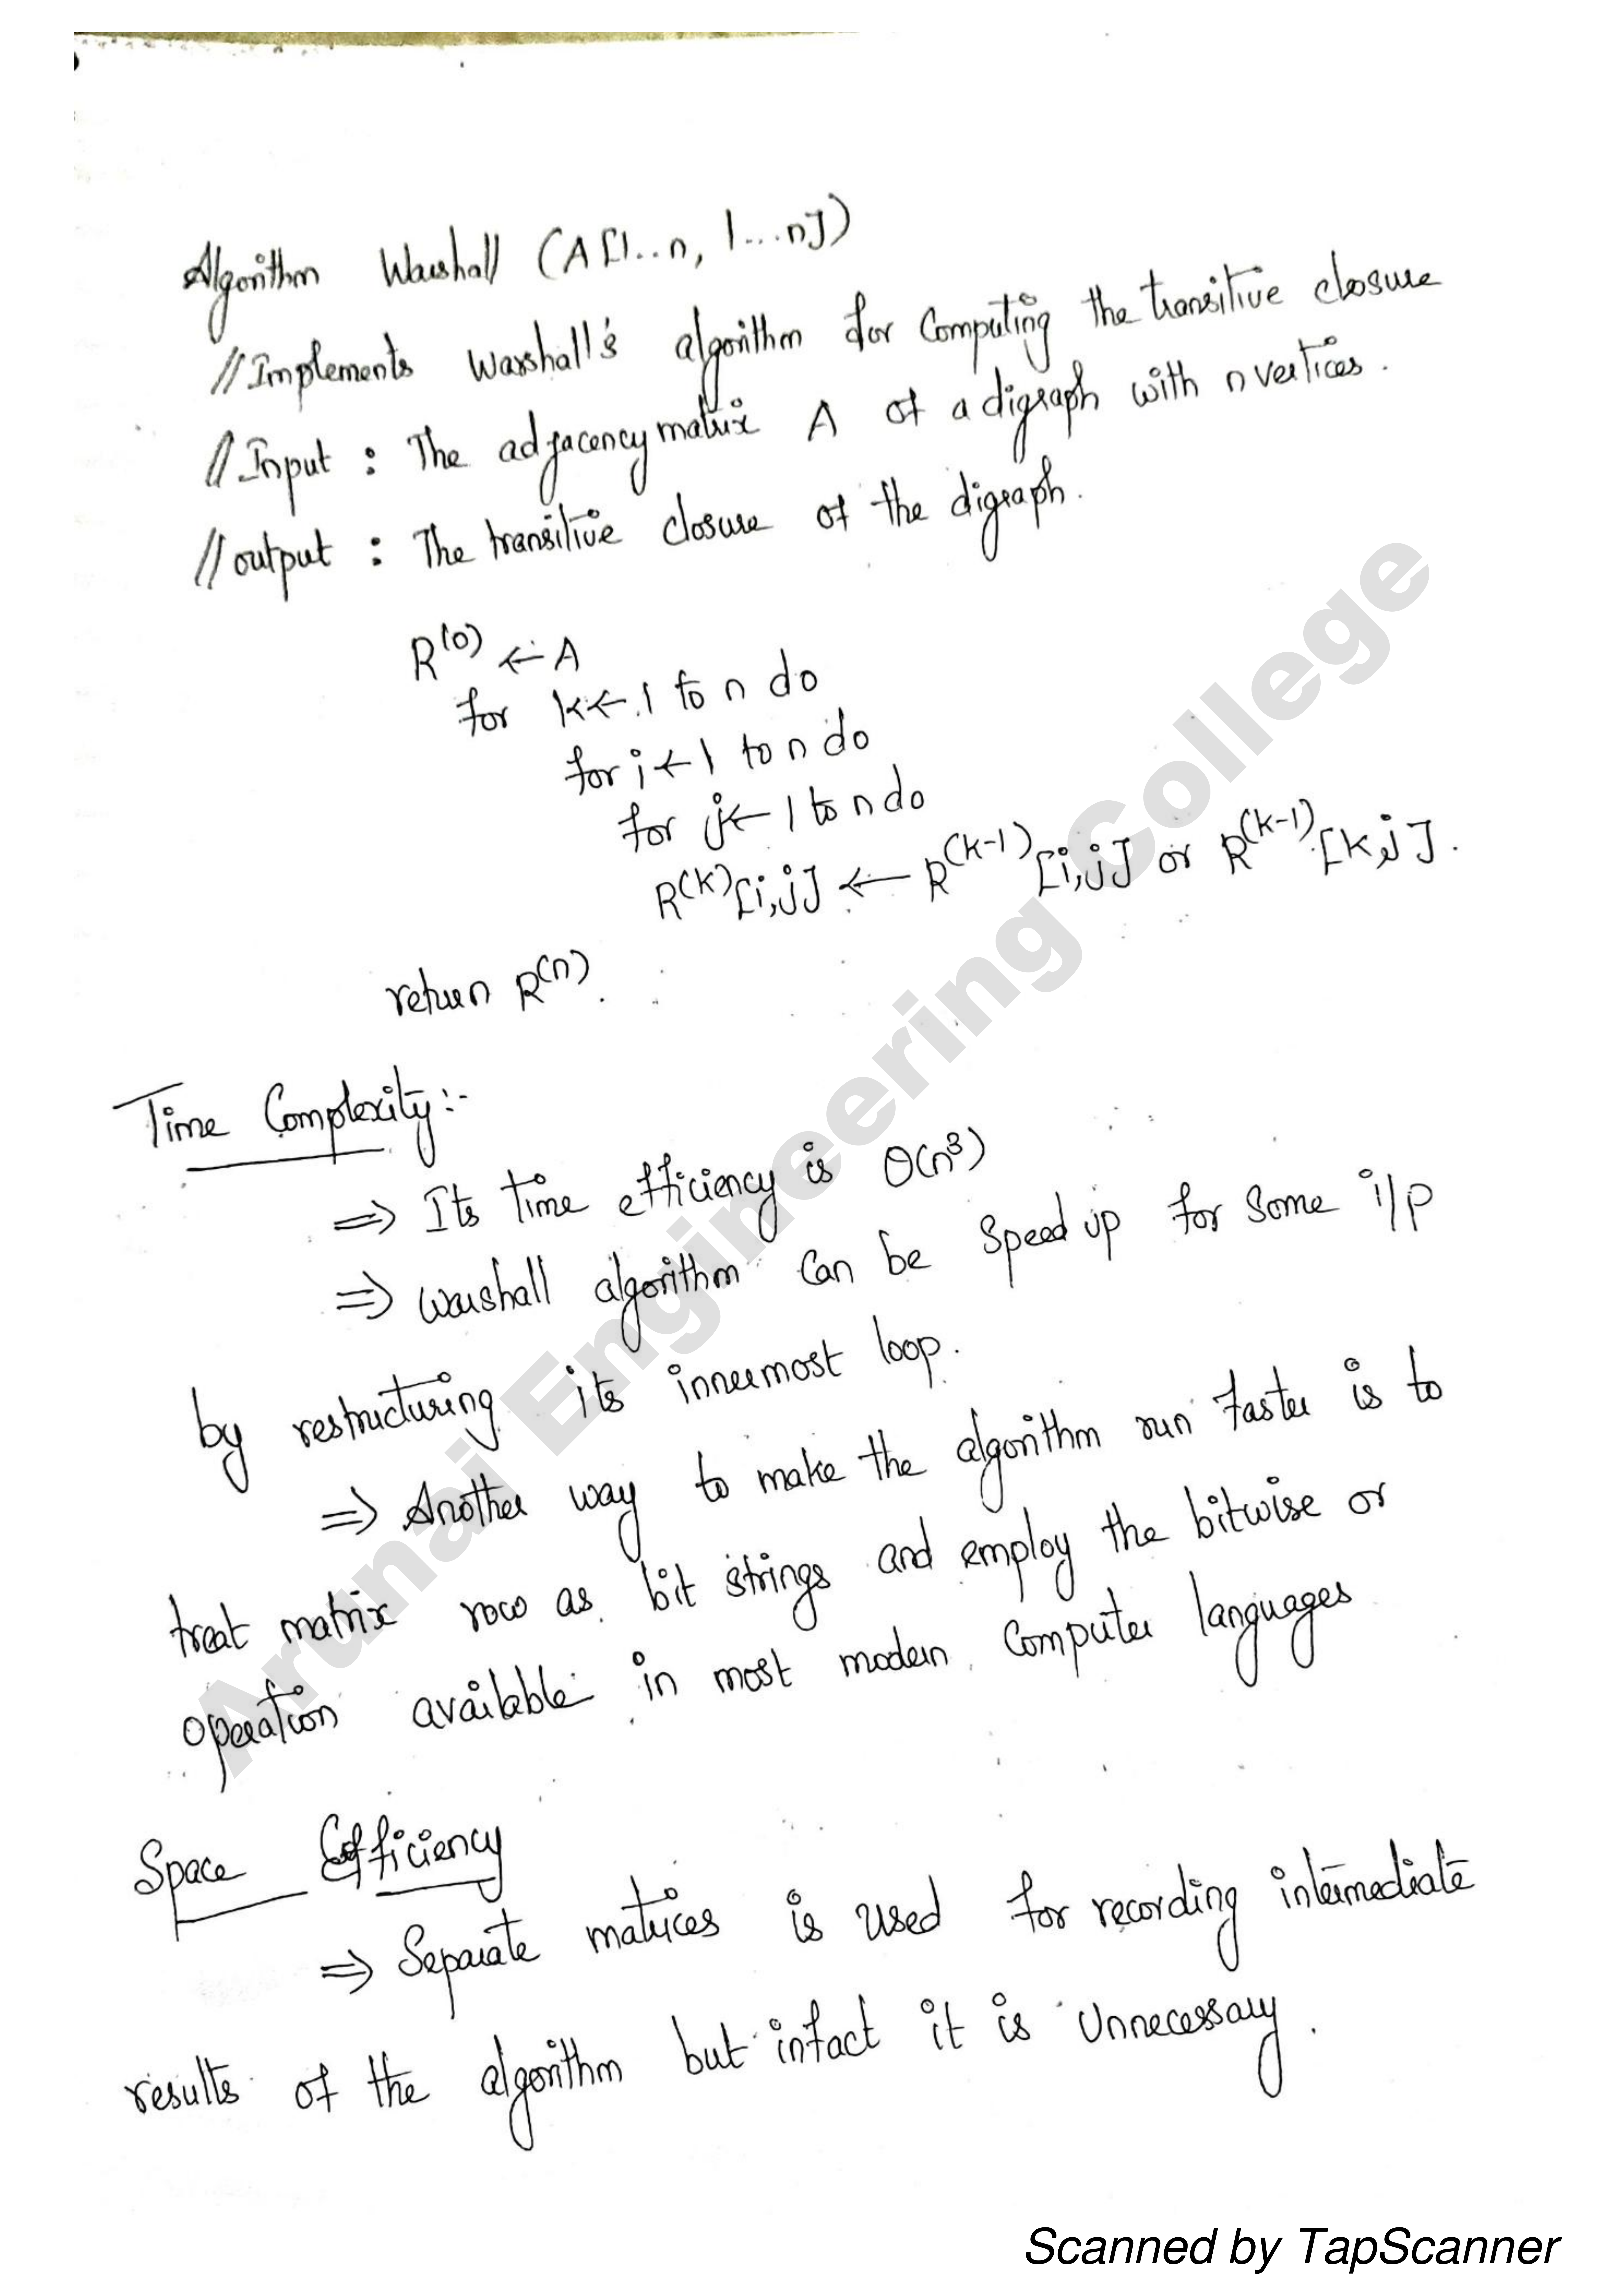 Algorithm Warshall (A[1..n, 1...n])
//Implements Warshall's algorithm for Computing the transitive closure
//Input : The adjacency matrix A of a digraph with n vertices.
//output : The transitive closure of the digraph.
R(0) ← A
for k ← 1 to n do
for i ← 1 to n do
for j ← 1 to n do
R(k)[i,j] ← R(k-1)[i,j] or R(k-1)[k,j].
return R(n).
Time Complexity:-
⇒ Its time efficiency is Θ(n³)
⇒ Warshall algorithm can be speed up for some i/p
by restructuring its innermost loop.
⇒ Another way to make the algorithm run faster is to
treat matrix row as bit strings and employ the bitwise or
operation available in most modern computer languages
Space Efficiency
⇒ Separate matrices is used for recording intermediate
results of the algorithm but infact it is Unnecessary.
Arunai Engineering College
Scanned by TapScanner